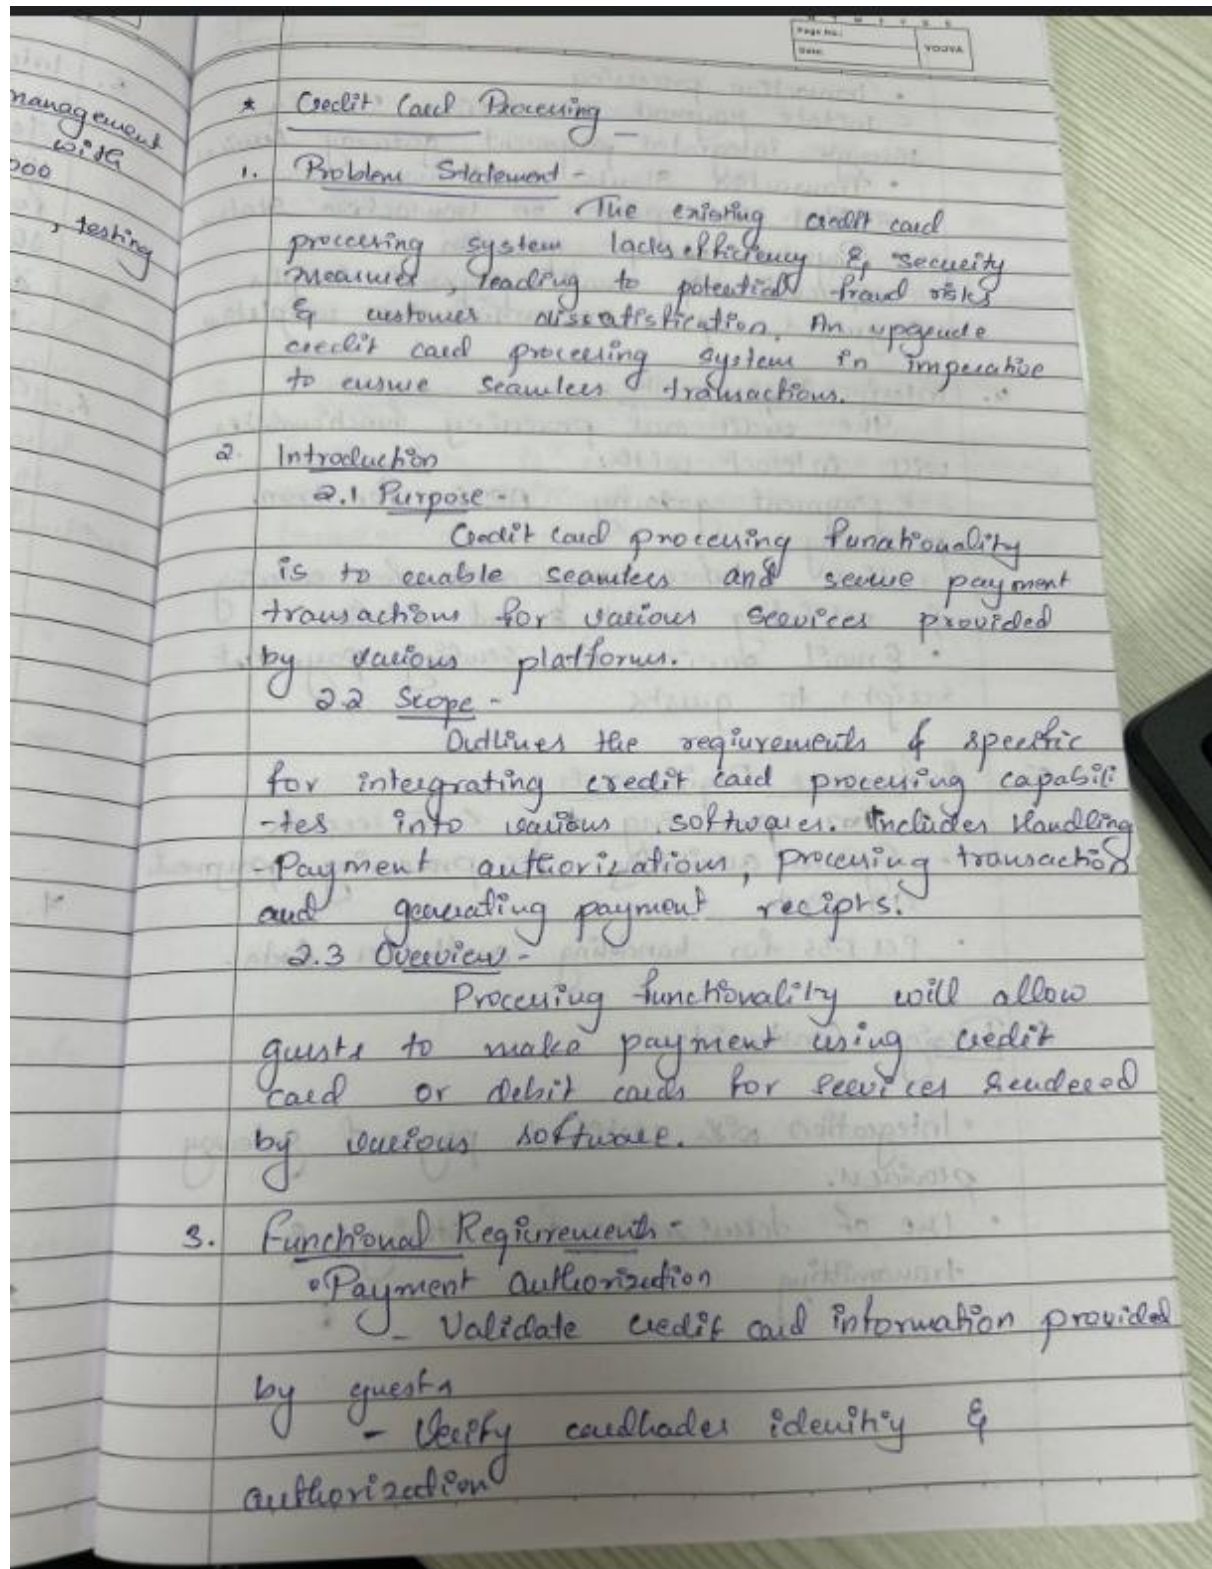 Page No.:
Date:
YOUVA
management
with
000
, testing
* Credit Card Processing -
1. Problem Statement -
The existing credit card
processing system lacks efficiency & security
measures, leading to potential fraud risks
& customer dissatisfication. An upgrade
credit card processing system in imperative
to ensure seamless transactions.
2. Introduction
2.1. Purpose -
Credit card processing funationality
is to enable seamless and secure payment
transactions for various services provided
by various platforms.
2.2 Scope -
Outlines the requirements & specific
for intergrating credit card processing capabili
-tes into various softwares. Includes Handling
-Payment authorizations, processing transaction
and generating payment recipts.
2.3 Overview -
Processing functionality will allow
guests to make payment using credit
card or debit cards for services rendered
by various software.
3. Functional Requirements -
• Payment authorization
- Validate credit card information provided
by guests
- Verify cardhader idenitiy &
authorization